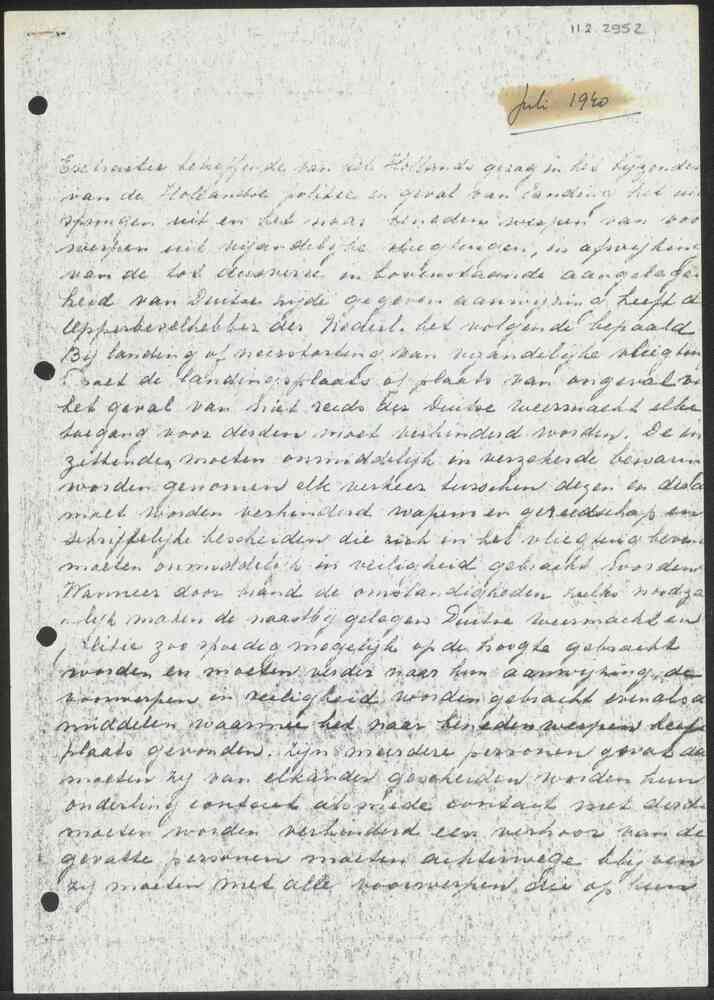 112 2952
Juli 1940
betreffende van het Hollands gezag in het bijzonder
van de Hollandse politie in geval van landing het uit
springen uit en het naar beneden werpen van voor
werpen uit vijandelijke vliegtuigen, in afwijking
van de tot dusverre in bovenstaande aangelegen
heid van Duitse zijde gegeven aanwijzing, heeft de
Opperbevelhebber der Nederl. het volgende bepaald
Bij landing of neerstorting van vijandelijke vliegtui
moet de landingsplaats of plaats van ongeval
het geval van niet reeds der Duitse weermacht elke
toegang voor derden moet verhinderd worden. De in
zittenden moeten onmiddelijk in verzekerde bewarin
worden genomen elk verkeer tusschen dezen en
moet worden verhinderd wapens en gereedschap en
schriftelijke bescheiden die zich in het vliegtuig beven
moeten onmiddelijk in veiligheid gebracht worden
Wanneer door de omstandigheden zulks noodza
lijk maken de naastbij gelegen Duitse weermacht en
politie zoo spoedig mogelijk op de hoogte gebracht
worden en moeten verder naar hun aanwijzing de
voorwerpen in veiligheid worden gebracht evenals d
middelen waarmee het naar beneden werpen heeft
plaats gevonden. Zijn meerdere personen gevat da
moeten zij van elkander gescheiden worden hun
onderling contact alsmede contact met derde
moeten worden verhinderd een verhoor van de
gevatte personen moeten achterwege blijven
zij moeten met alle voorwerpen die op hun